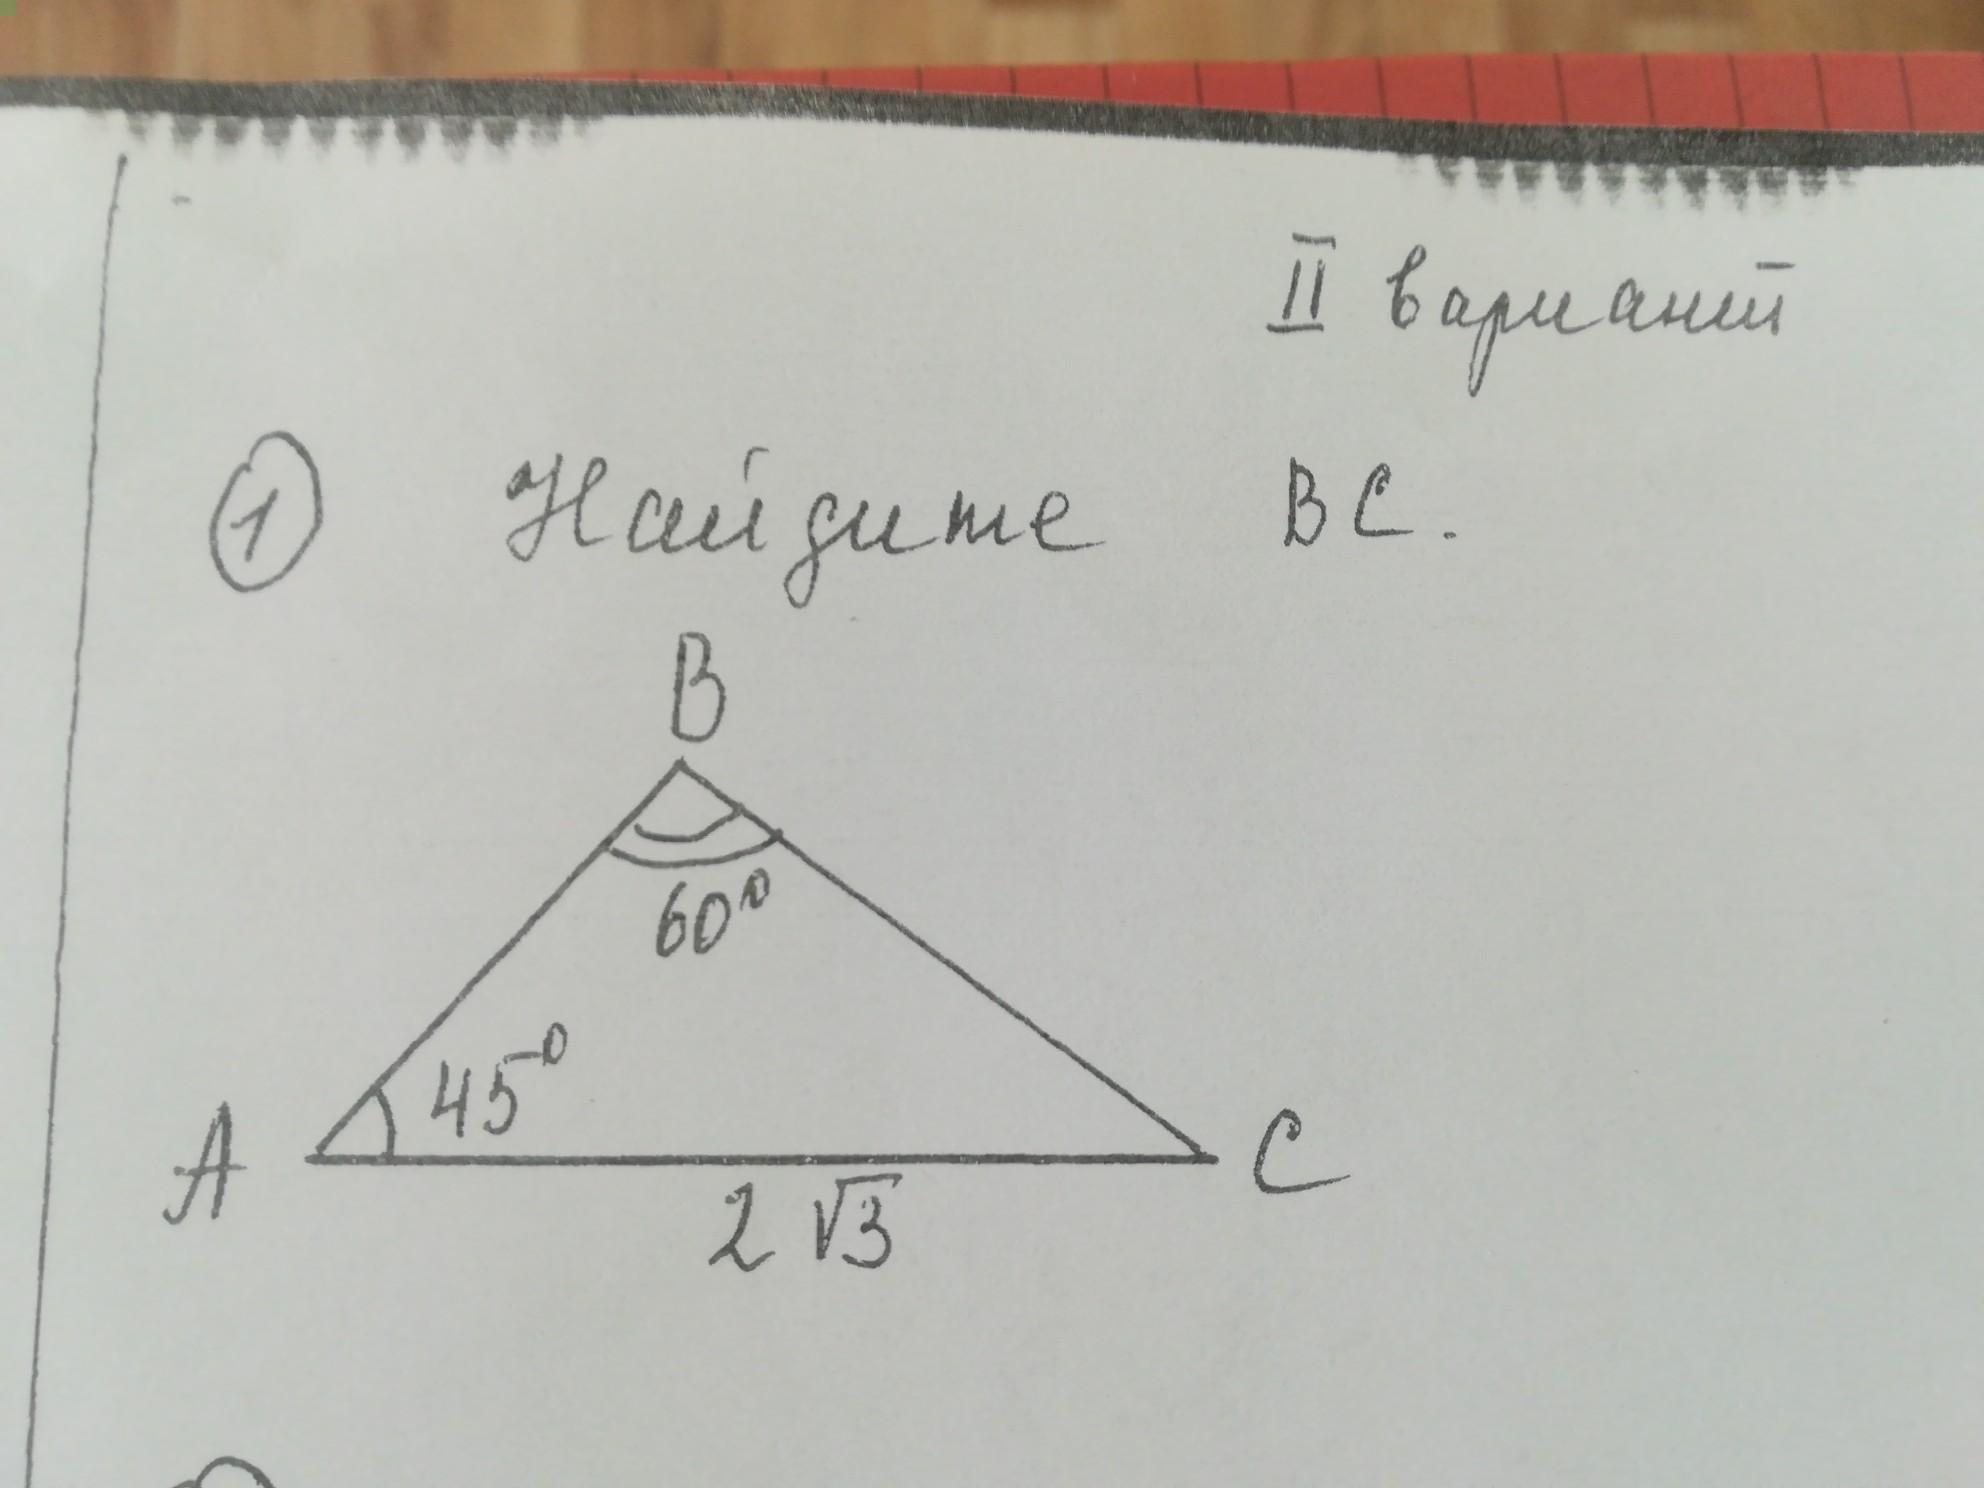 II вариант
1 Найдите BC.
B
60°
45°
A
C
2√3